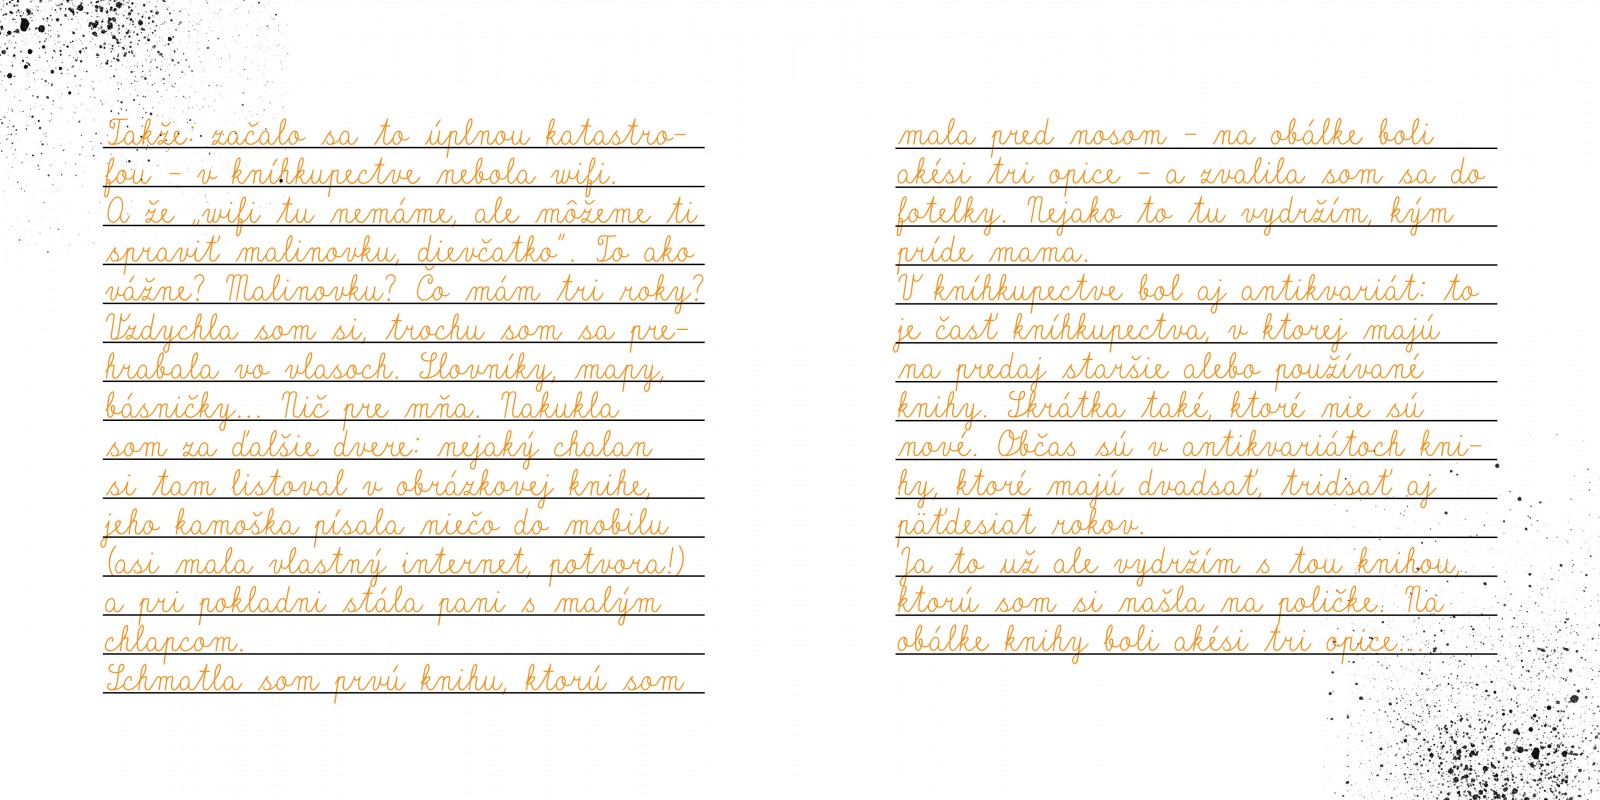 Takže: začalo sa to úplnou katastro-
fou - v kníhkupectve nebola wifi.
A že „wifi tu nemáme, ale môžeme ti
spraviť malinovku, dievčatko“. To ako
vážne? Malinovku? Čo mám tri roky?
Vzdychla som si, trochu som sa pre-
hrabala vo vlasoch. Slovníky, mapy,
básničky... Nič pre mňa. Nakukla
som za ďalšie dvere: nejaký chalan
si tam listoval v obrázkovej knihe,
jeho kamoška písala niečo do mobilu
(asi mala vlastný internet, potvora!)
a pri pokladni stála pani s malým
chlapcom.
Schmatla som prvú knihu, ktorú som
mala pred nosom - na obálke boli
akési tri opice - a zvalila som sa do
fotelky. Nejako to tu vydržím, kým
príde mama.
V kníhkupectve bol aj antikvariát: to
je časť kníhkupectva, v ktorej majú
na predaj staršie alebo používané
knihy. Skrátka také, ktoré nie sú
nové. Občas sú v antikvariátoch kni-
hy, ktoré majú dvadsať, tridsať aj
päťdesiat rokov.
Ja to už ale vydržím s tou knihou,
ktorú som si našla na poličke. Na
obálke knihy boli akési tri opice...